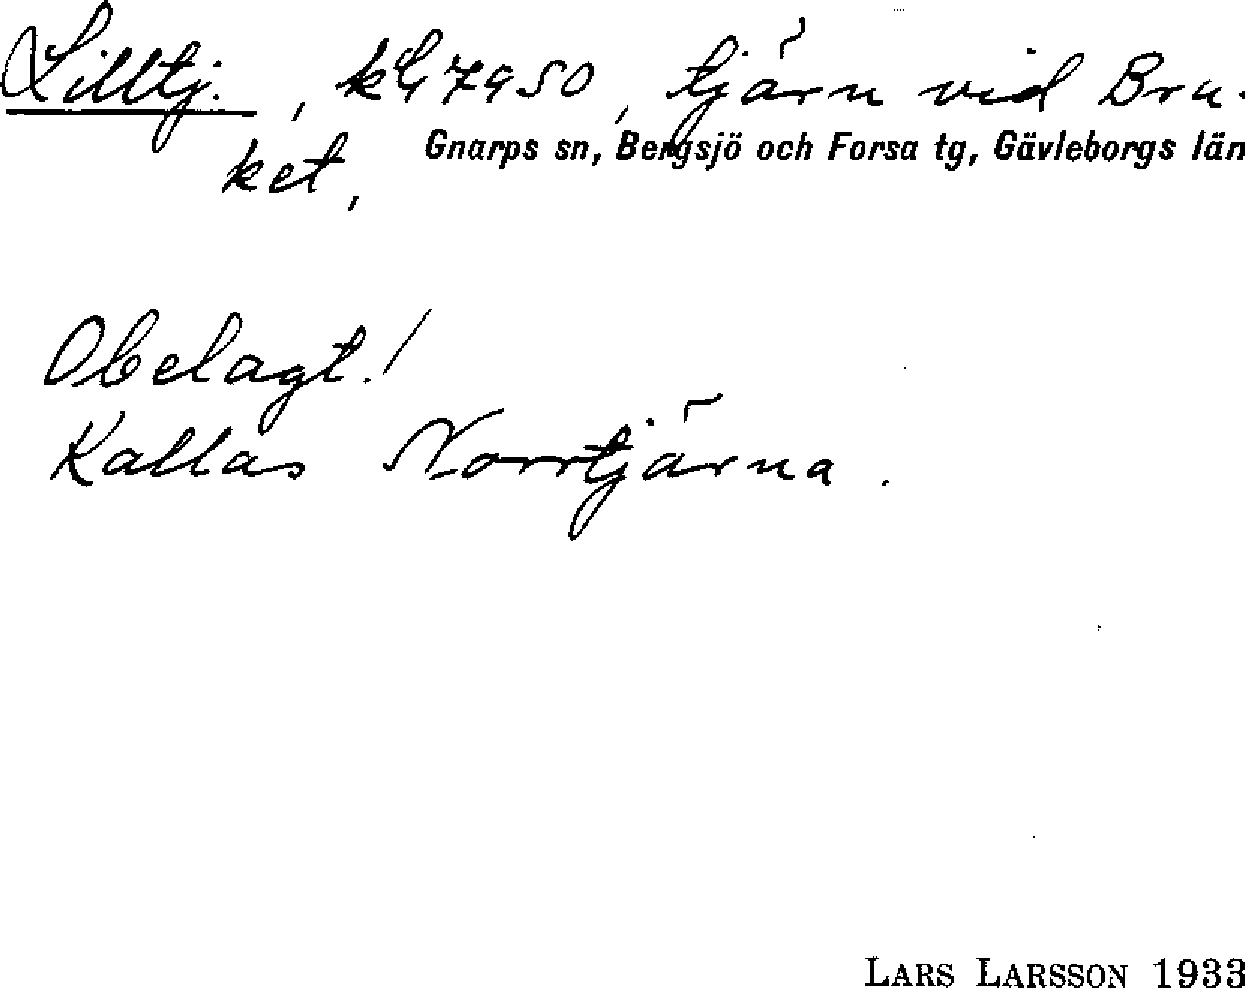 Lilltj., kg 7950, tjärn vid Bru-
Gnarps sn, Bergsjö och Forsa tg, Gävleborgs län
ket,
Obelagt!
Kallas Norrtjärna.
LARS LARSSON 1933